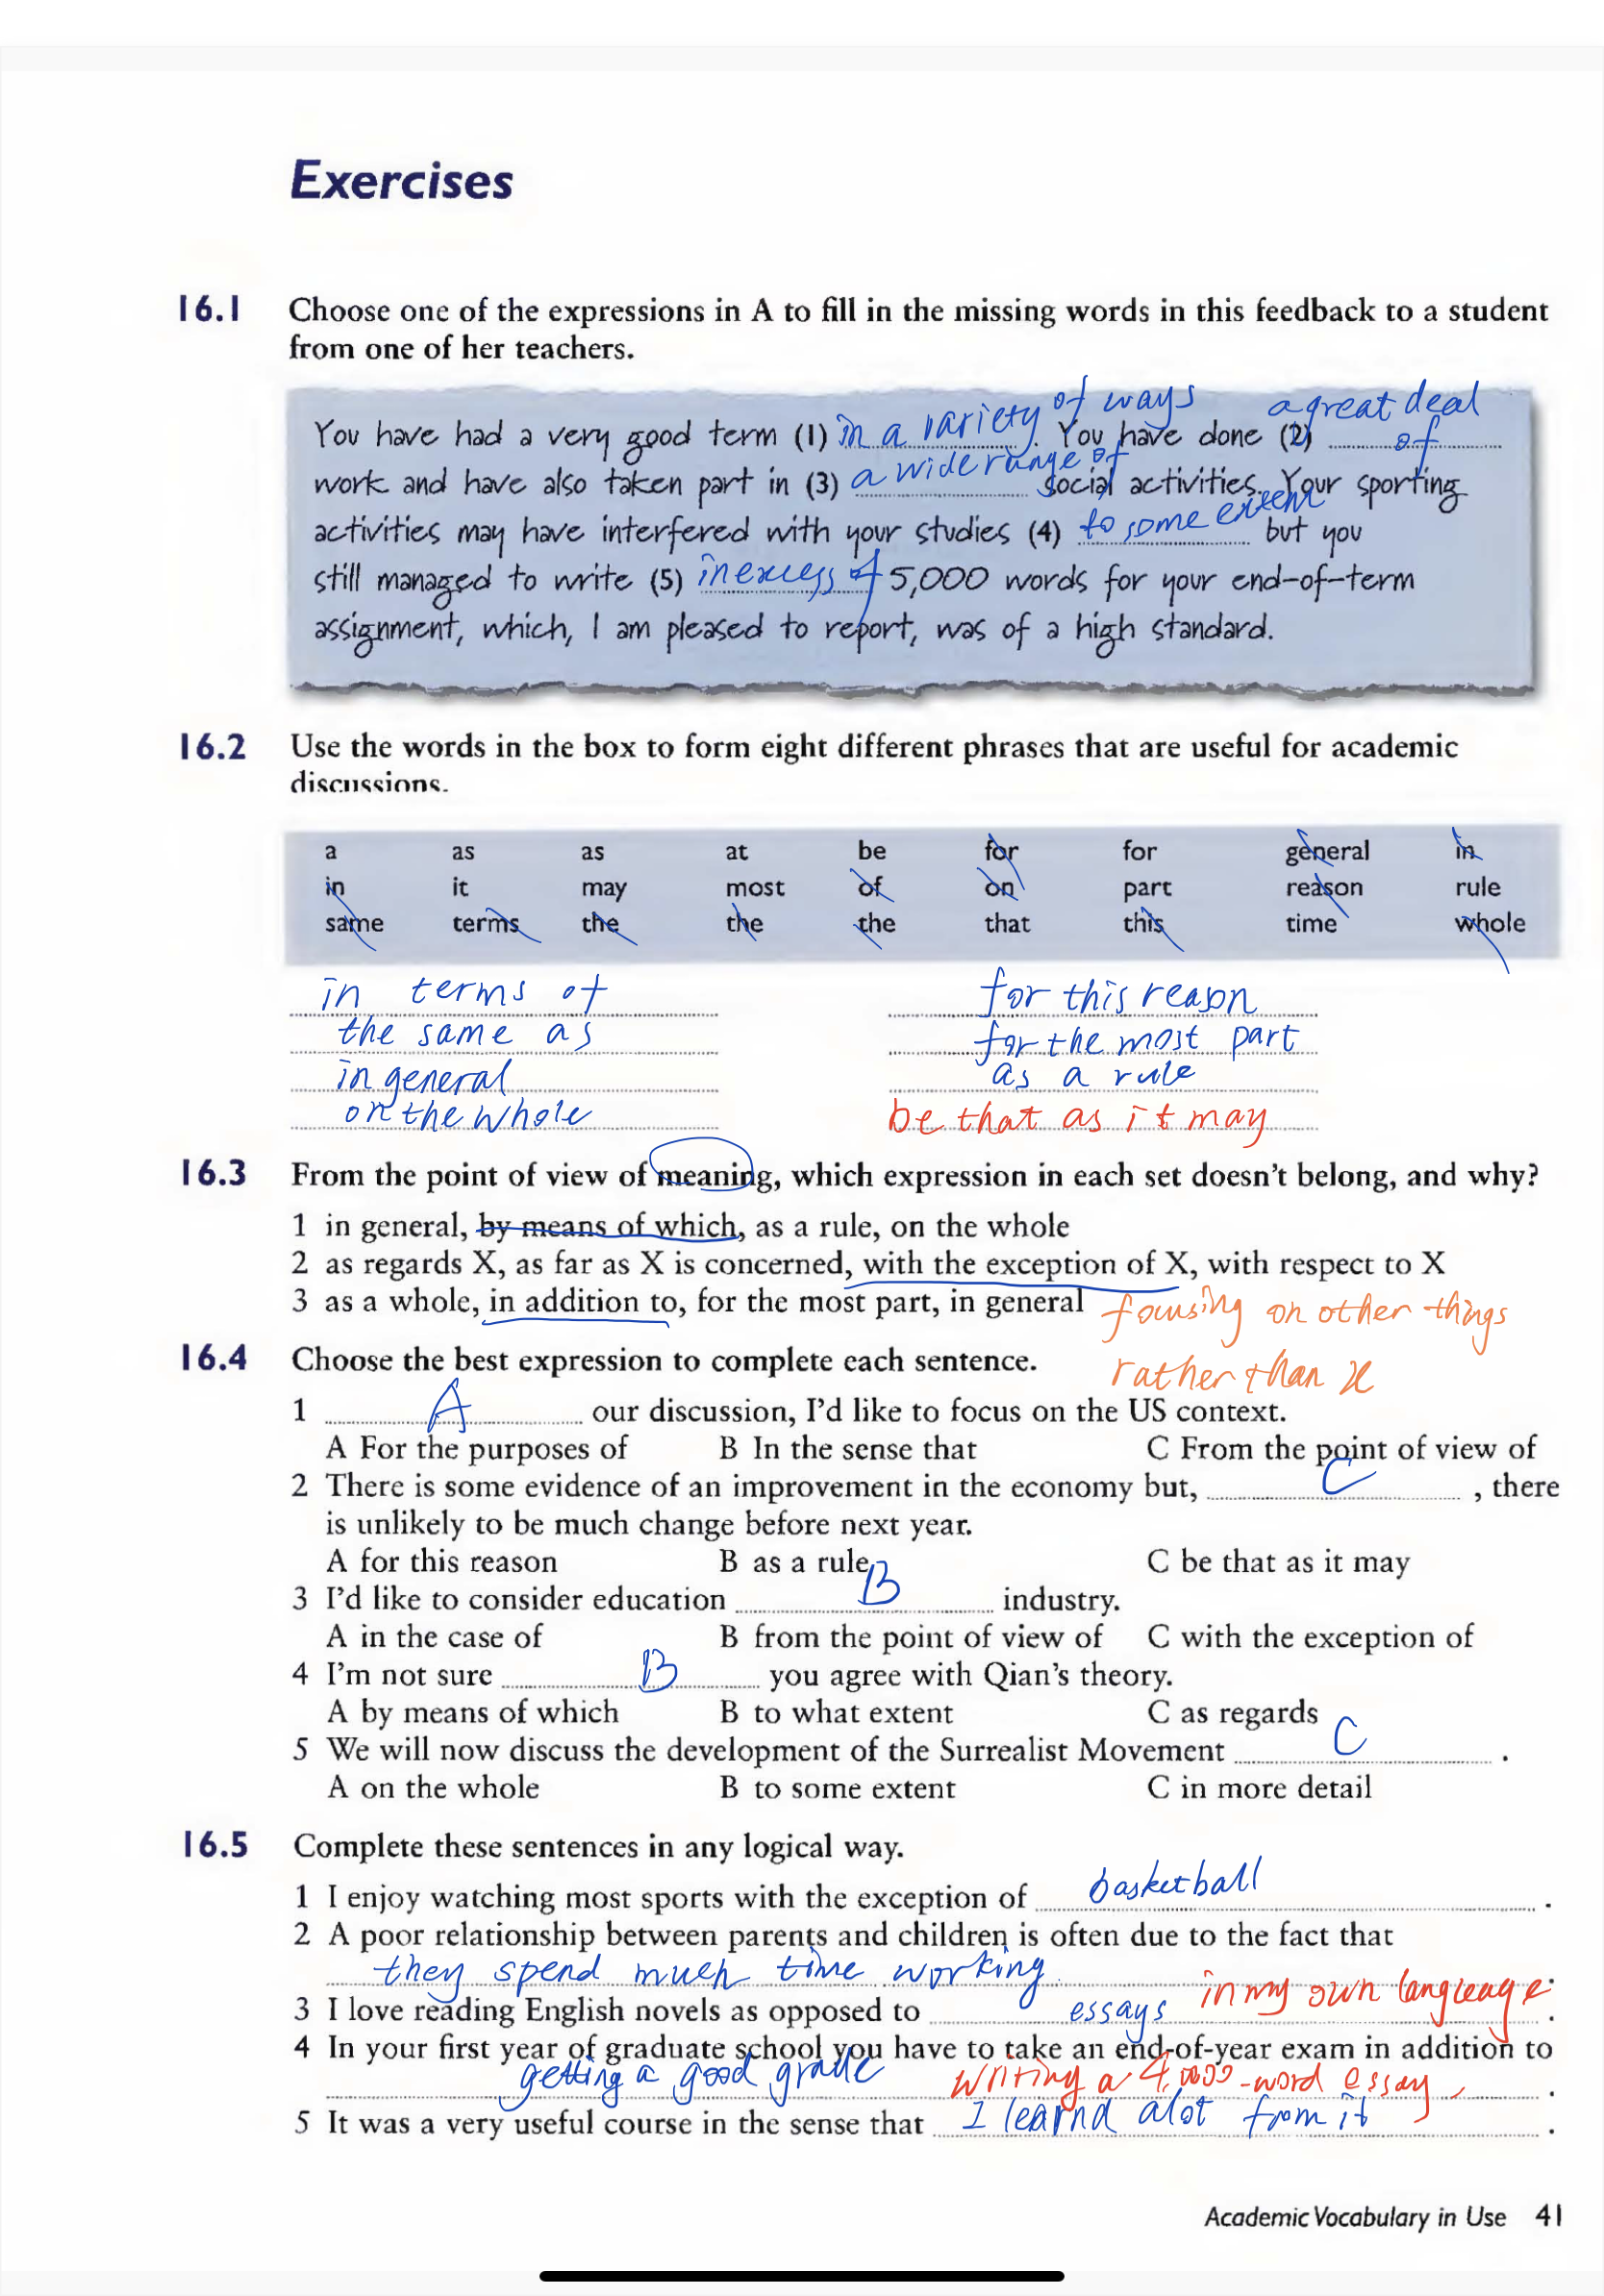 Exercises
16.1 Choose one of the expressions in A to fill in the missing words in this feedback to a student
from one of her teachers.
You have had a very good term (1) in a variety of ways . You have done (2) a great deal of
work and have also taken part in (3) a wide range of social activities. Your sporting
activities may have interfered with your studies (4) to some extent but you
still managed to write (5) in excess of 5,000 words for your end-of-term
assignment, which, I am pleased to report, was of a high standard.
16.2 Use the words in the box to form eight different phrases that are useful for academic
discussions.
a as as at be for for general in
in it may most of on part reason rule
same terms the the the that this time whole
in terms of for this reason
the same as for the most part
in general as a rule
on the whole be that as it may
16.3 From the point of view of meaning, which expression in each set doesn't belong, and why?
1 in general, by means of which, as a rule, on the whole
2 as regards X, as far as X is concerned, with the exception of X, with respect to X
3 as a whole, in addition to, for the most part, in general focusing on other things
rather than x
16.4 Choose the best expression to complete each sentence.
1 A our discussion, I'd like to focus on the US context.
A For the purposes of B In the sense that C From the point of view of
2 There is some evidence of an improvement in the economy but, C , there
is unlikely to be much change before next year.
A for this reason B as a rule C be that as it may
3 I'd like to consider education B industry.
A in the case of B from the point of view of C with the exception of
4 I'm not sure B you agree with Qian's theory.
A by means of which B to what extent C as regards
5 We will now discuss the development of the Surrealist Movement C .
A on the whole B to some extent C in more detail
16.5 Complete these sentences in any logical way.
1 I enjoy watching most sports with the exception of basketball .
2 A poor relationship between parents and children is often due to the fact that
they spend much time working .
3 I love reading English novels as opposed to essays in my own language .
4 In your first year of graduate school you have to take an end-of-year exam in addition to
getting a good grade writing a 4,000-word essay, .
5 It was a very useful course in the sense that I learnd alot from it .
Academic Vocabulary in Use 41